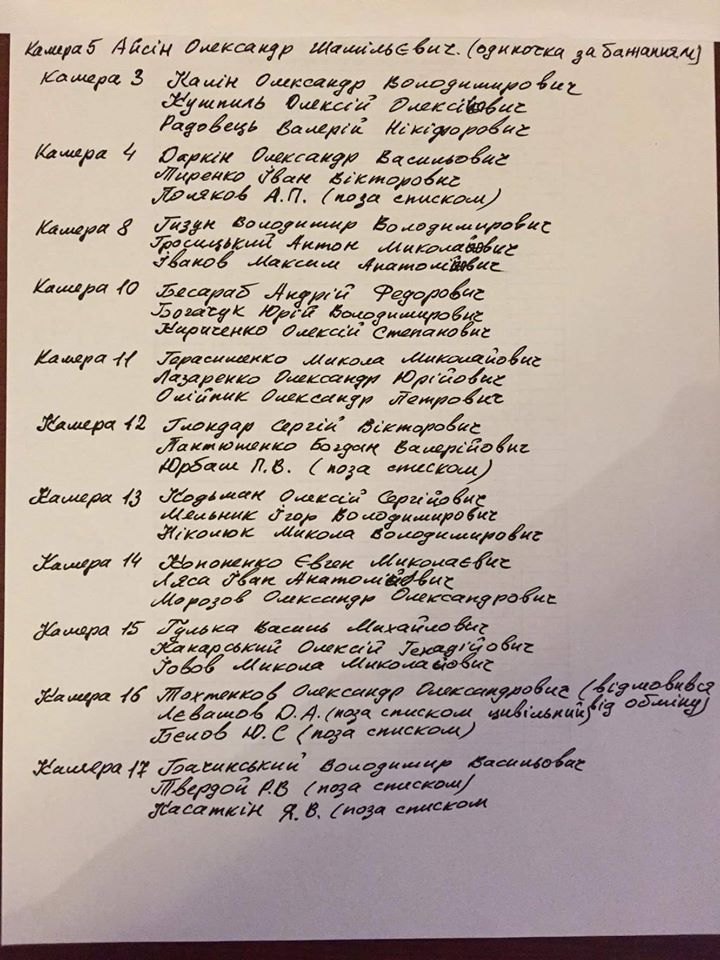 Камера 5 Айсін Олександр Шамільєвич. (одиночка за бажанням)
Камера 3 Калін Олександр Володимирович
Кушпиль Олексій Олексійович
Радовець Валерій Нікіфорович
Камера 4 Даркін Олександр Васильович
Тиренко Іван Вікторович
Поляков А.П. (поза списком)
Камера 8 Гизун Володимир Володимирович
Гросицький Антон Миколайович
Іванов Максим Анатолійович
Камера 10 Бесараб Андрій Федорович
Богачук Юрій Володимирович
Кириченко Олексій Степанович
Камера 11 Герасименко Микола Миколайович
Лазаренко Олександр Юрійович
Олійник Олександр Петрович
Камера 12 Глондар Сергій Вікторович
Пантюшенко Богдан Валерійович
Юрбаш П.В. (поза списком)
Камера 13 Кодьман Олексій Сергійович
Мельник Ігор Володимирович
Ніколюк Микола Володимирович
Камера 14 Кононенко Євген Миколаєвич
Ляса Іван Анатолійович
Морозов Олександр Олександрович
Камера 15 Гулька Василь Михайлович
Какарський Олексій Генадійович
Іовов Микола Миколайович
Камера 16 Тохтенков Олександр Олександрович (відмовився від обміну)
Лєвашов Д.А. (поза списком цивільний)
Бєлов Ю.С (поза списком)
Камера 17 Бачинський Володимир Васильович
Твердой Р.В (поза списком)
Касаткін Я.В. (поза списком